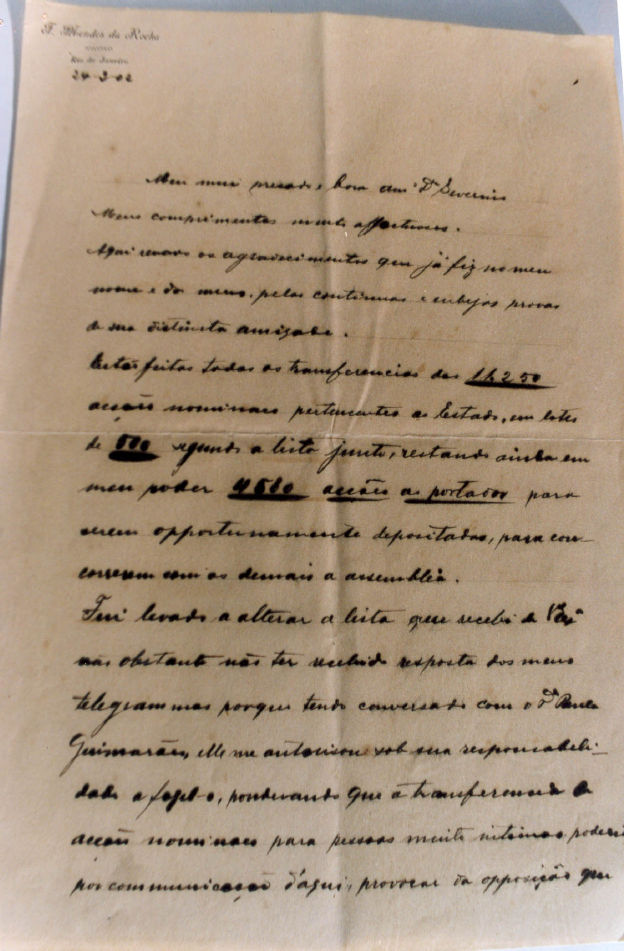 F. Mendes da Rocha
Rio de Janeiro
24-2-02
Meu mui presado e bom amº Dr Severino
Meus comprimentos muito affectuosos.
Aqui renovo os agradecimentos que já fiz no meu
nome e do meus, pelas continuas e subejas provas
de sua distincta amizade.
Estão feitas todas as transferencias das 14250
acções nominaes pertencentes ao Estado, em lotes
de segundo a lista junto, restando ainda em
meu poder 4500 acções ao portador para
serem opportunamente depositadas, para con-
correrem com as demais a assembléa.
Fui levado a alterar a lista que recebi de
não obstante não ter recebido resposta dos meus
telegrammas porque tendo conversado com o Dr Paula
Guimarães, elle me autorisou sob sua responsabili-
dade a fazel-o, ponderando que a transferencia de
acções nominaes para pessoas muito intimas poderia
por communicação d'aqui, provocar da opposição que